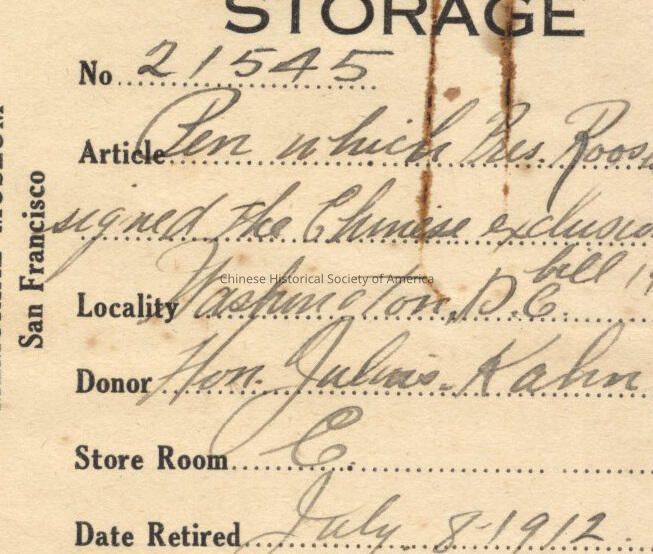 STORAGE
No 21545
Article Pen which Pres. Roos
signed the Chinese exclusio
bill 19
Chinese Historical Society of America
Locality Washington, D.C.
Donor Hon. Julius Kahn
Store Room C.
Date Retired July 8-1912
San Francisco